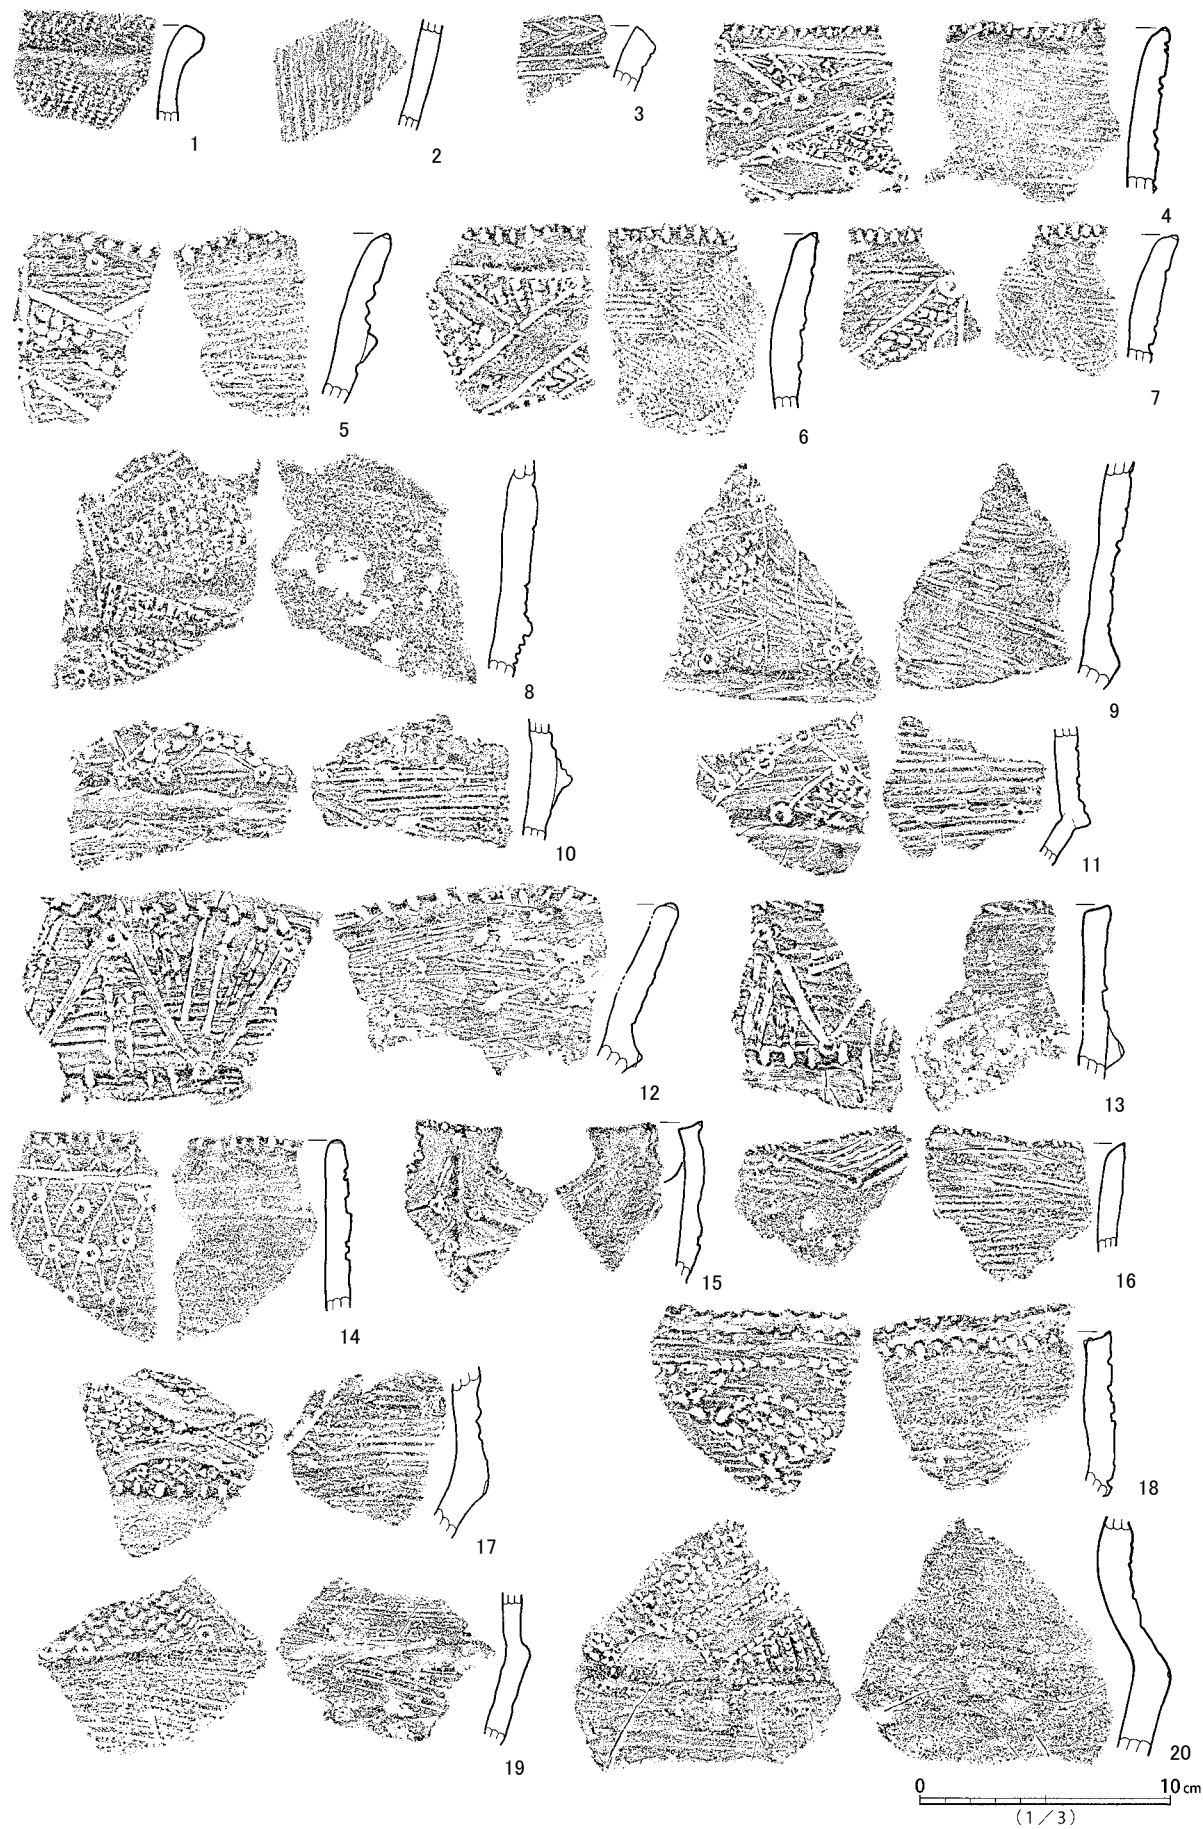 1
2
3
4
5
6
7
8
9
10
11
12
13
14
15
16
17
18
19
20
0 10 cm
(1/3)